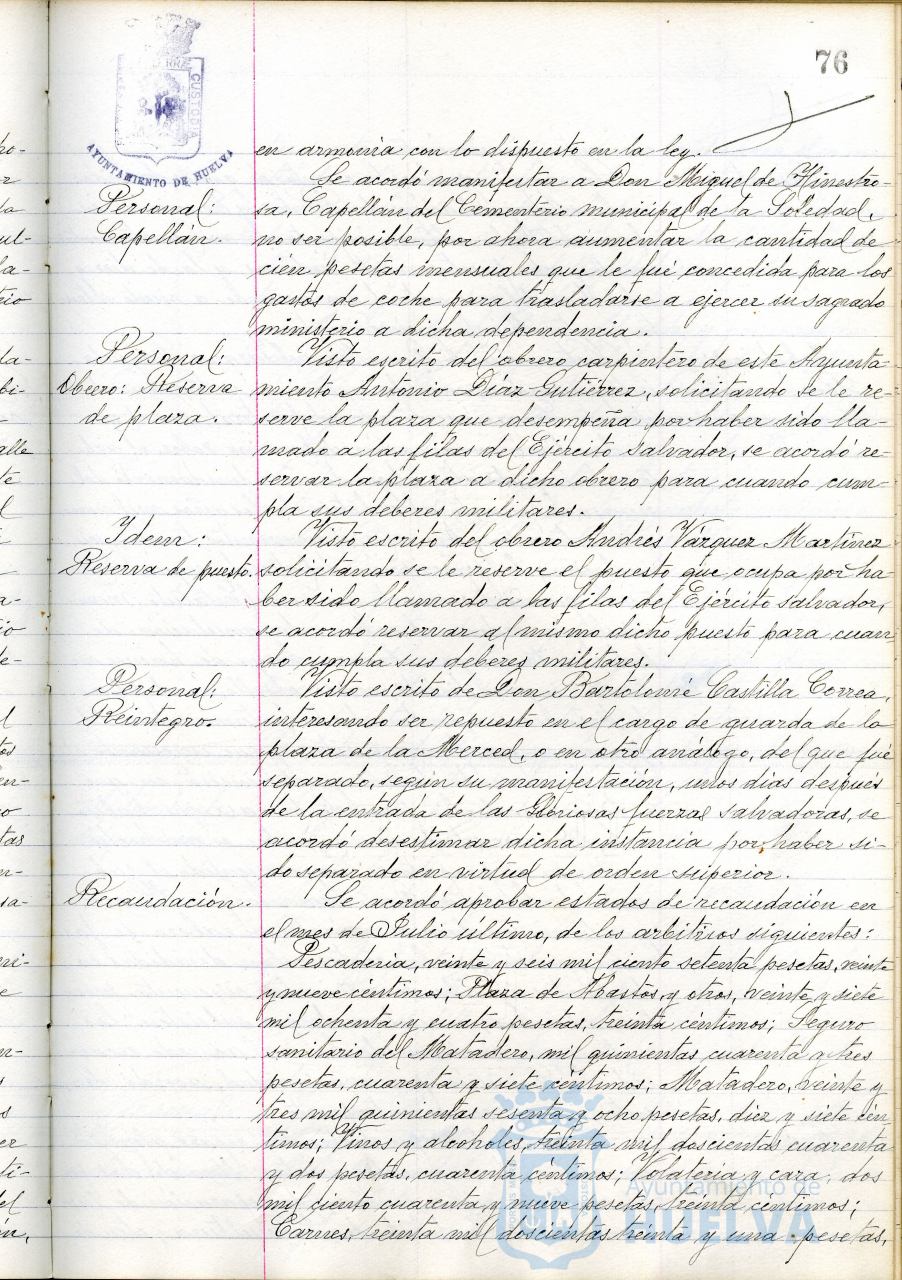 76
AYUNTAMIENTO DE HUELVA
CUSTODIA
en armonia con lo dispuesto en la ley.
Personal:
Capellán.
Se acordó manifestar a Don Miguel de Hinestro-
sa, Capellán del Cementerio municipal de la Soledad,
no ser posible, por ahora aumentar la cantidad de
cién pesetas mensuales que le fué concedida para los
gastos de coche para trasladarse a ejercer su sagrado
ministerio a dicha dependencia.
Personal:
Obrero: Reserva
de plaza.
Visto escrito del obrero carpintero de este Ayunta-
miento Antonio Díaz Gutiérrez, solicitando se le re-
serve la plaza que desempeña por haber sido lla-
mado a las filas del Ejército Salvador, se acordó re-
servar la plaza a dicho obrero para cuando cum-
pla sus deberes militares.
Idem:
Reserva de puesto.
Visto escrito del obrero Andrés Vázquez Martínez
solicitando se le reserve el puesto que ocupa por ha
ber sido llamado a las filas del Ejército Salvador,
se acordó reservar al mismo dicho puesto para cuan
do cumpla sus deberes militares.
Personal:
Reintegro.
Visto escrito de Don Bartolomé Castilla Correa,
interesando ser repuesto en el cargo de guarda de la
plaza de la Merced, o en otro análogo, del que fué
separado, según su manifestación, unos dias después
de la entrada de las Gloriosas fuerzas salvadoras, se
acordó desestimar dicha instancia por haber si-
do separado en virtud de orden superior.
Recaudación.
Se acordó aprobar estados de recaudación en
el mes de Julio último, de los arbitrios siguientes:
Pescaderia, veinte y seis mil ciento setenta pesetas, veinte
y nueve céntimos; Plaza de Abastos y otros, veinte y siete
mil ochenta y cuatro pesetas, treinta céntimos; Seguro
sanitario del Matadero, mil quinientas cuarenta y tres
pesetas, cuarenta y siete céntimos; Matadero, veinte y
tres mil quinientas sesenta y ocho pesetas, diez y siete cén
timos; Vinos y alcoholes, treinta mil doscientas cuarenta
y dos pesetas, cuarenta céntimos; Volateria y caza, dos
mil ciento cuarenta y nueve pesetas, treinta céntimos;
Carnes, treinta mil doscientas treinta y una pesetas,
Ayuntamiento de
HUELVA